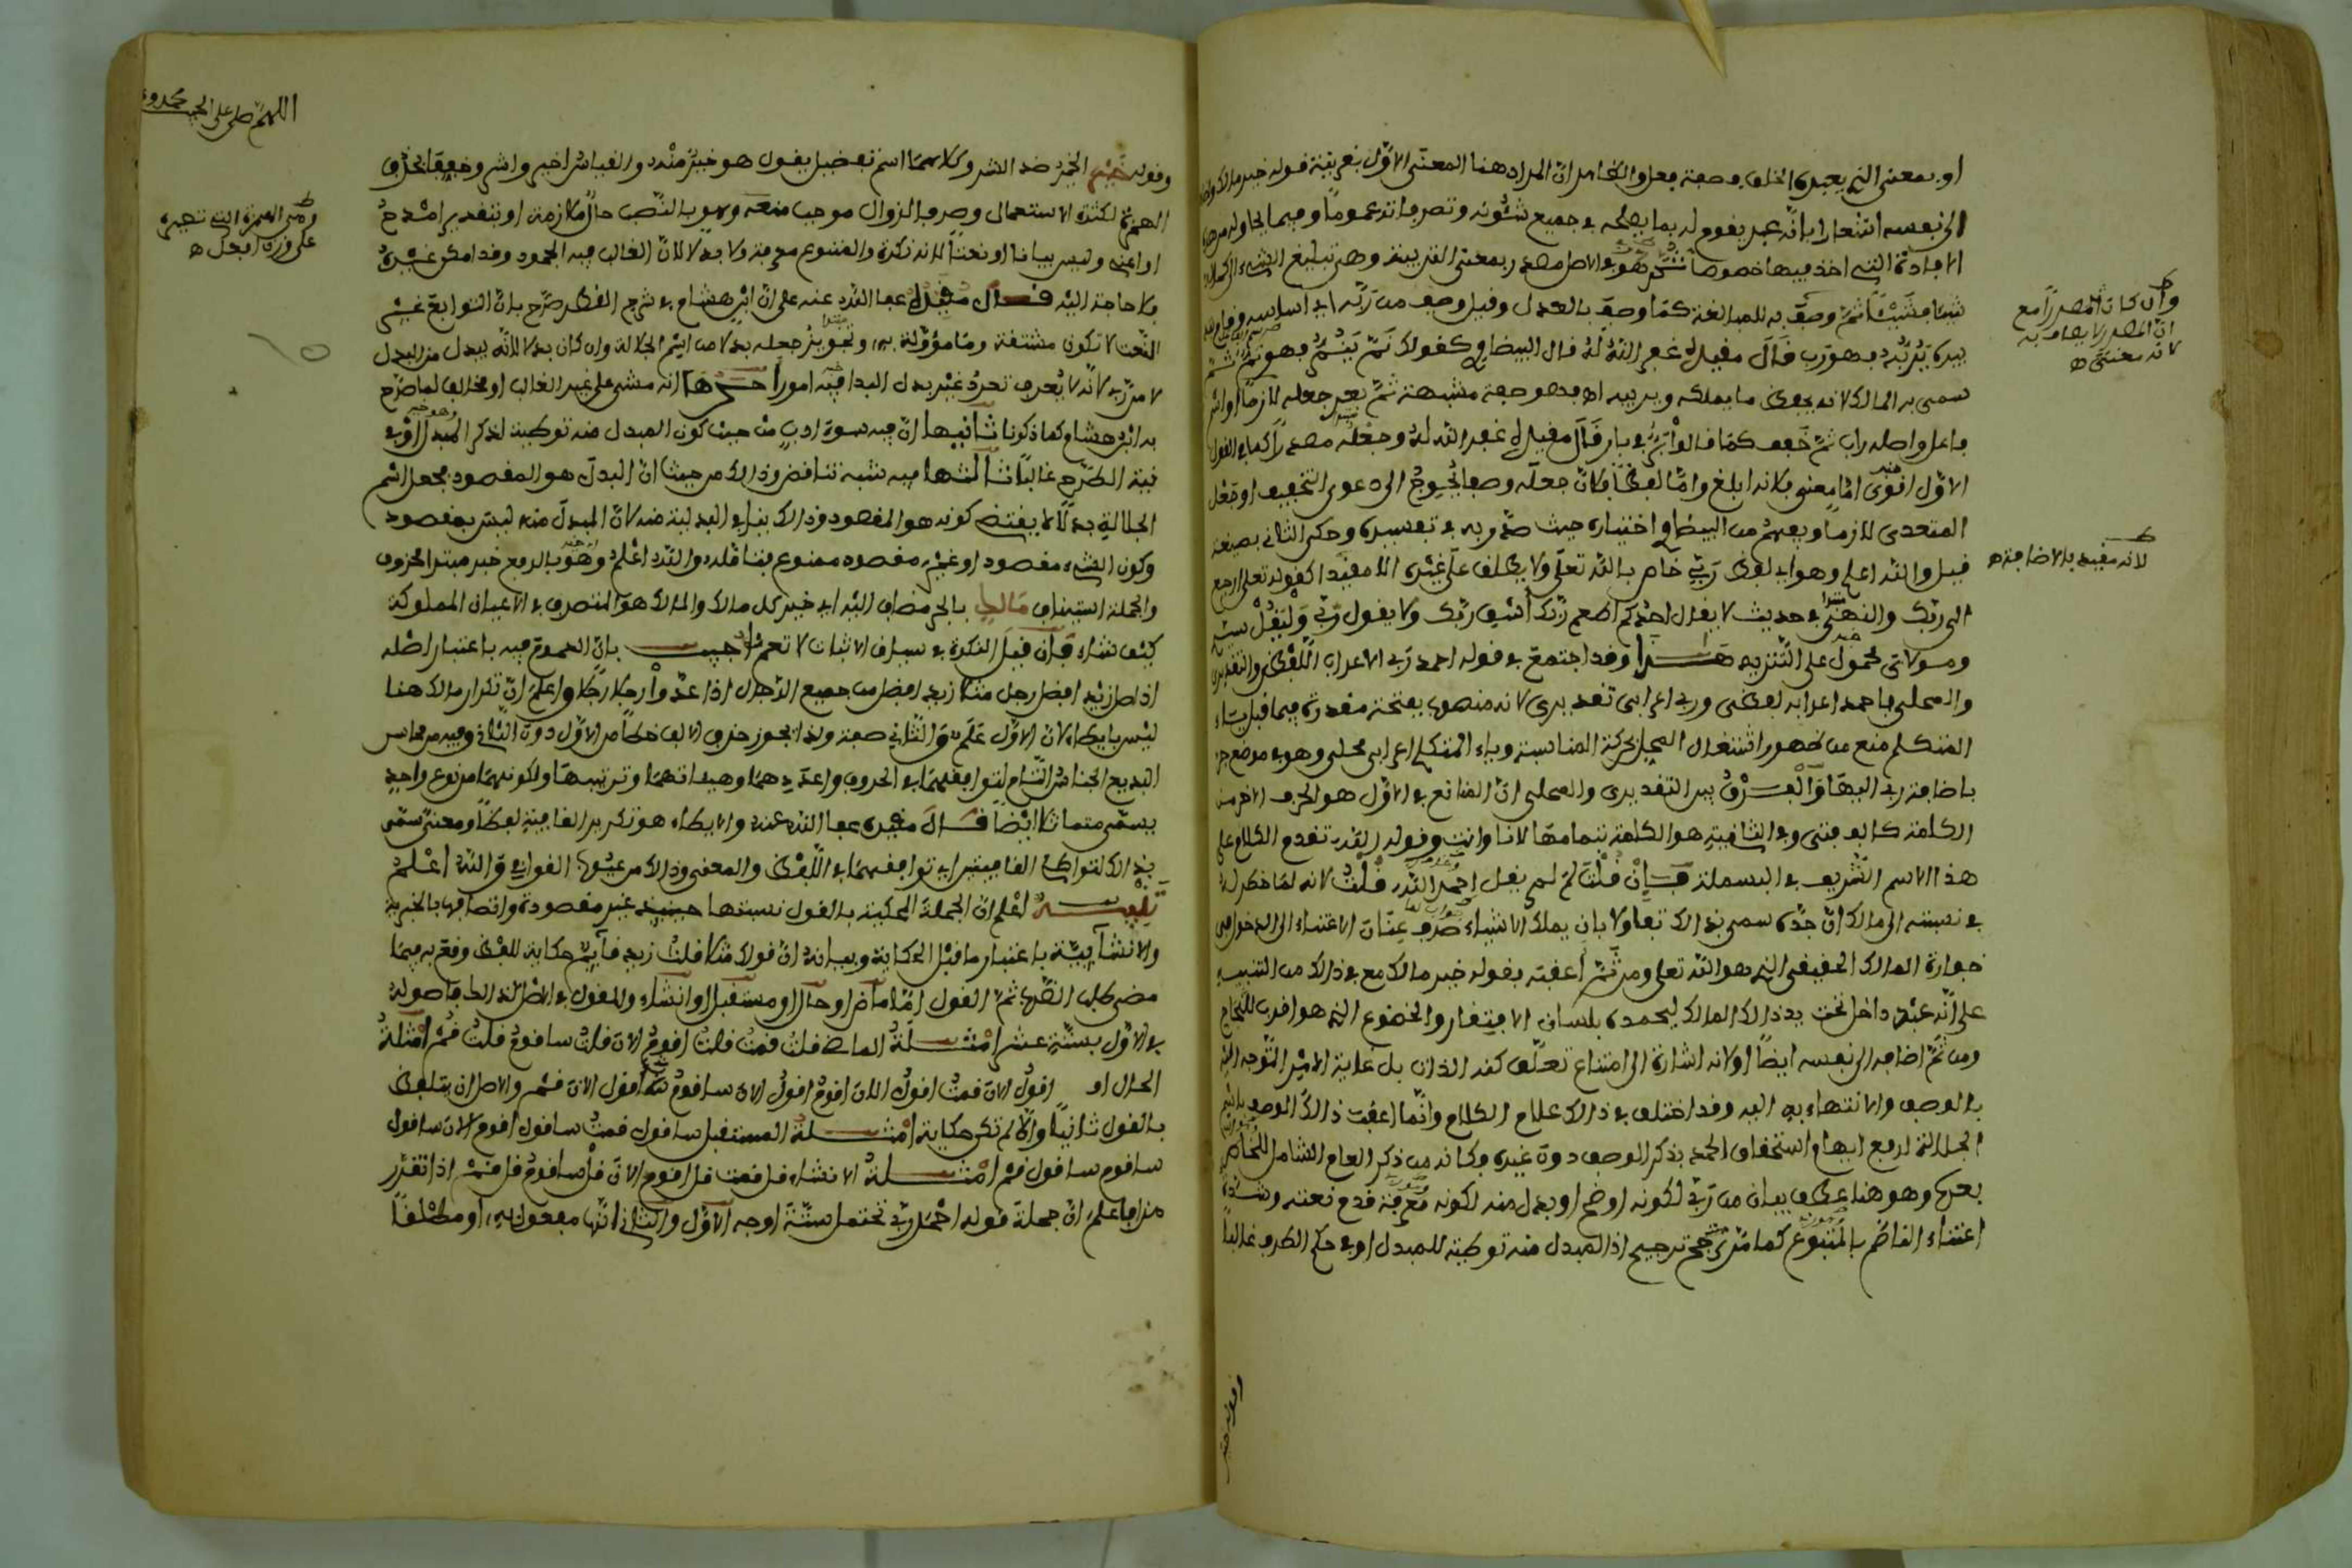 او بمعنى الذي يعبده الخلق وصفة فعل والظاهر ان المراد هنا المعنى الاول بقرينة قوله خير مالك
الى نفسه اشعارا بانه عبد يقوم له بما يصلحه في جميع شئونه وتصرفاته عموما وفيما يحاوله من هذه
الافادة التي اخذ فيها خصوصا ثم هو في الاصل مصدر بمعنى التربية وهي تبليغ الشيء الى كماله
شيئا فشيئا ثم وصف به للمبالغة كما وصف بالعدل وقيل وصف من ربه
يربه فهو رب قال مقيده غفر الله له قال البيضاوي كقولك نم ينم فهو نم ثم
سمي به المالك لانه يحفظ ما يملكه ويربيه اه فهو صفة مشبهة
فاعل واصله راب ثم خفف كما قالوا بر في بار قال مقيده غفر الله له وجعله مصدرا كما في القول
الاول اقوى اما معنى فلانه ابلغ واما لفظا فلان جعله وصفا يحوج الى دعوى التخفيف او جعل
المتعدي لازما ويفهم من البيضاوي اختياره حيث صدر به في تفسيره وحكى الثاني بصيغة
قيل والله اعلم وهو اي لفظ رب خاص بالله تعلى ولا يطلق على غيره الا مقيدا كقوله تعلى ارجع
الى ربك والنهي في حديث لا يقل احدكم اطعم ربك اسق ربك ولا يقول ربي وليقل سيدي
ومولاي محمول على التنزيه هذا وقد اجتمع في قوله احمد ربي الاعراب اللفظي والتقديري
والمحلي فاحمد اعرابه لفظي ورب اعرابي تقديري لانه منصوب بفتحة مقدرة فيما قبل ياء
المتكلم منع من ظهورها اشتغال المحل بحركة المناسبة وياء المتكلم اعرابي محلي وهو في موضع جر
باضافة رب اليها والفرق بين التقديري والمحلي ان المانع في الاول هو الحرف الاخر من
الكلمة كالف فتى وفي الثاني هو الكلمة بتمامها كانا وانت وقوله الله تقدم الكلام على
هذا الاسم الشريف في البسملة فان قلت لم لم يقل احمد الله قلت لانه لما ذكر له
في نسبته الى مالك ان جده سمي بذلك تفاؤلا بان يملك الاشياء صرف عنان الاعتناء الى الدخول في
حوازة المالك الحقيقي الذي هو الله تعلى ومن ثم اعقبه بقوله خير مالك مع في ذلك من التنبيه
على انه عبد داخل تحت يد ذلك المالك ليحمده بلسان الافتقار والخضوع الذي هو اقرب للنجاح
ومن ثم اضافه الى نفسه ايضا او لانه اشارة الى امتناع تعلق كنه الذات بل غاية الامر التوجه اليه
بالوصف والانتهاء به اليه وقد اختلف في ذلك علماء الكلام وانما اعقب ذلك الوصف باسم
الجلالة لرفع ابهام استحقاق الحمد بذكر الوصف دون غيره وكانه من ذكر العام الشامل للخاص
بعده وهو هنا عطف بيان من ربي لكونه اوضح او بدل منه لكونه معرفة قدم نعته وشدة
اعتناء الناظم بالمتبوع كما مر ترجيح اذ المبدل منه توطئة للبدل او في حكم الطرح غالبا
وان كان المصدر امع
ان المصدر لا يوصف به
لانه معنى اه
لانه مقيد بالاضافة اه
اللهم صل على الحبيب محمد و
وقوله خير الخير ضد الشر وكلاهما اسم تفضيل يقول هو خير منه والقياس اخير واشر وخففا بحذف
الهمزة لكثرة الاستعمال وصرفا لزوال موجب منعه وهو بالنصب حال لازمة او بتقدير امدح
او اعني وليس بيانا او نعتا لانه نكرة والمتبوع معرفة ولا بدلا لان الغالب فيه الجمود وقد امكن غيره
فلا حاجة اليه قال مقيده عفا الله عنه على ان ابن هشام في شرح القطر صرح بان التوابع غير
النعت لا تكون مشتقة وما مؤولة به وتجويز جعله بدلا من اسم الجلالة وان كان بدلا لانه يبدل من البدل
لا من ربي لانه لا يعرف تعدد غير بدل البدا فيه امورا احدها انه مشى على غير الغالب او مخالف لما صرح
به ابن هشام كما ذكرنا ثانيها ان فيه سوء ادب من حيث كون المبدل منه توطية لذكر البدل او في
نية الطرح غالبا ثالثها فيه شبه تناقض وذلك من حيث ان البدل هو المقصود فجعل اسم
الجلالة بدلا يقتضي كونه هو المقصود وذلك ينافي البدلية منه لان المبدل منه ليس بمقصود
وكون الشيء مقصود او غير مقصود ممنوع بتناقله والله اعلم وهو بالرفع خبر مبتدا محذوف
والجملة استيناف مالك بالجر مضاف اليه اي خير كل مالك والمالك هو المتصرف في الاعيان المملوكة
كيف شاء فان قيل النكرة في سياق الاثبات لا تعم اجيب بان العموم فيه باعتبار اصله
اذ اصل زيد افضل رجل مثلا زيد افضل من جميع الرجال اذا عدوا رجلا رجلا واعلم ان تكرار مالك هنا
ليس بايطاء لان الاول علم والثاني صفة ولذا يجوز حذف الالف خطا من الاول دون الثاني وفيه من محاسن
البديع الجناس التام لتوافقهما في الحروف واعدادهما وهيئاتهما وترتيبها ولكونهما من نوع واحد
يسمى متماثلا ايضا قال مقيده عفا الله عنه والايطاء هو تكرير القافية لفظا ومعنى سمي
بذلك لتواطئ القافيتين اي توافقهما في اللفظ والمعنى وذلك من عيوب القوافي والله اعلم
تنبيه اعلم ان الجملة المحكية بالقول نسبتها حينيذ غير مقصودة واتصافها بالخبرية
والانشائية باعتبار ما قبل الحكاية وبيانه ان قولك مثلا قلت زيد قائم حكاية للفظ وقع به فيما
مضى كلب الضرب ثم القول اما ماض او حال او مستقبل او انشاء والمقول في الاصل كذلك فاصوله
في الاول بستة عشر امثلة الماضي قلت قمت قلت اقوم الان قلت ساقوم قلت قم امثلة
الحال اقول الان قمت اقول الان اقوم اقول الان ساقوم اقول الان قم والاصل ان يتلفظ
بالقول ثانيا والا لم تكن حكاية امثلة المستقبل ساقول قمت ساقول اقوم الان ساقول
ساقوم ساقول قم امثلة الانشاء قل قمت قل اقوم الان قل ساقوم قل قم اذا تقرر
هذا فاعلم ان جملة قوله احمد ربي تحتمل ستة اوجه الاول والثاني انها مفعول به او مطلقا
وهي الهمزة التي تصيره
على وزن افعل اه